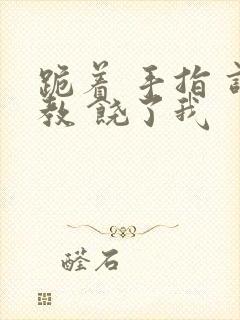 跪着 手指
教 饶了我
醛石